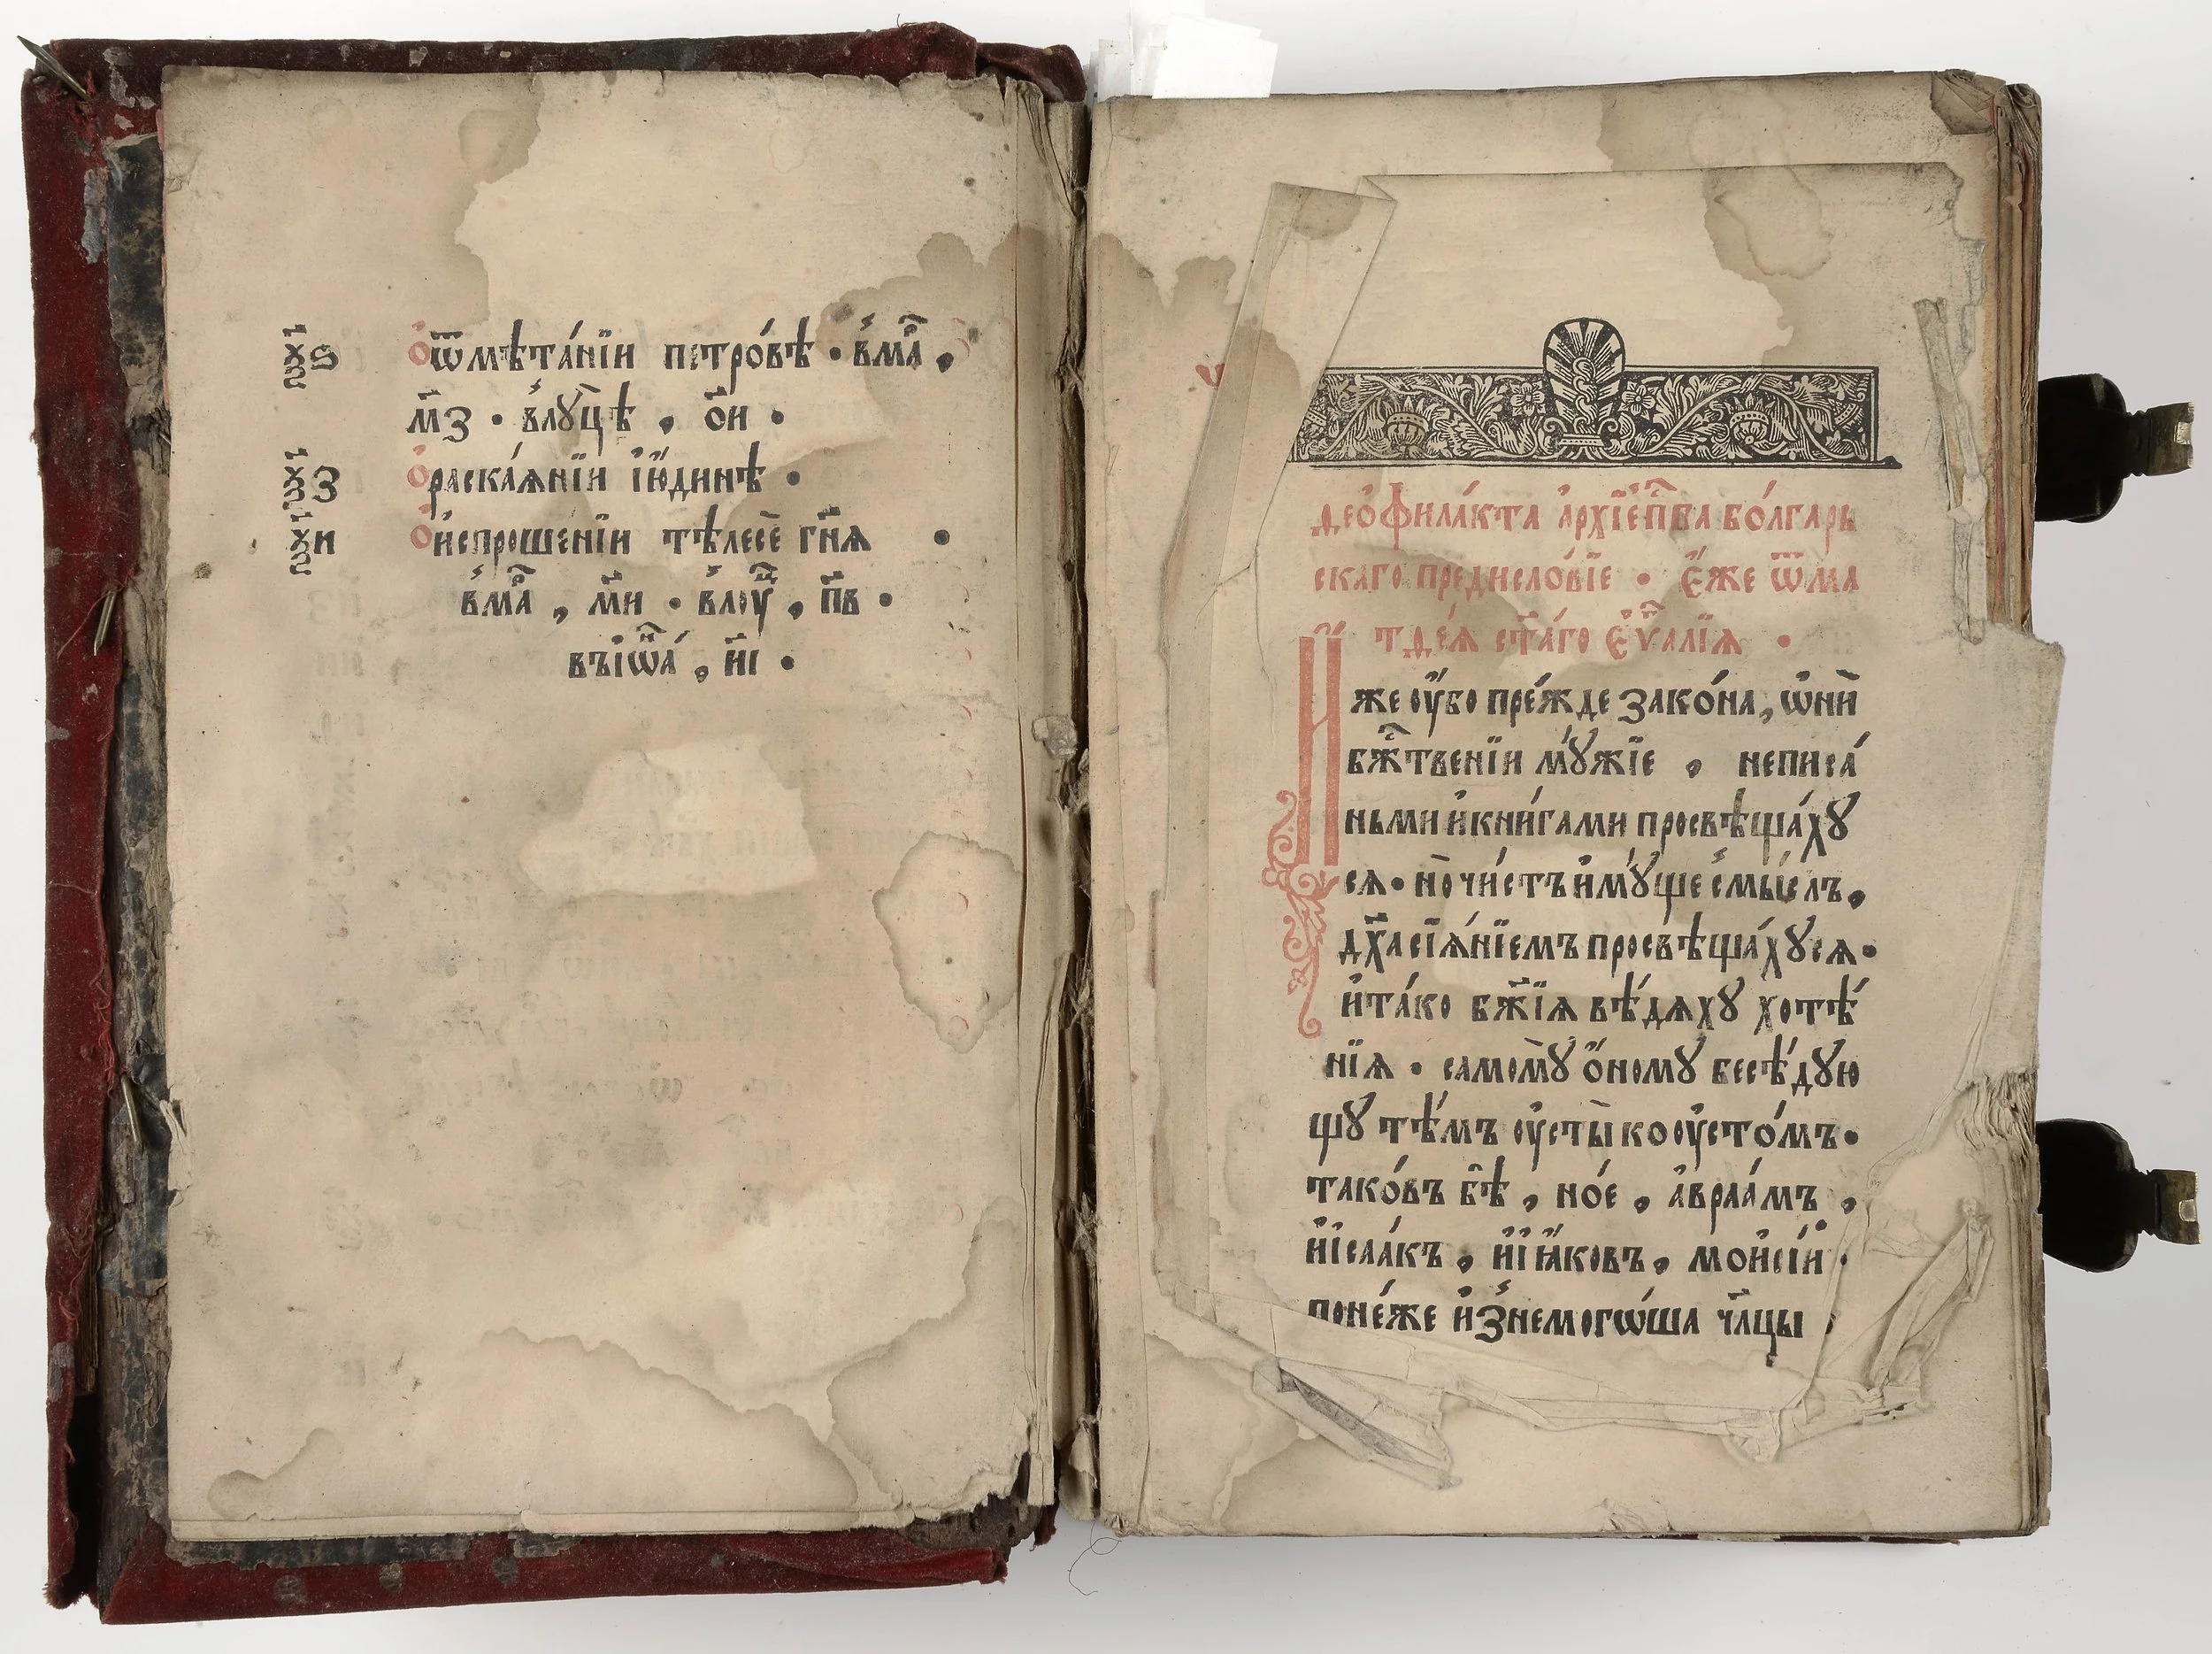 ѯ҃ѕ Ѻ ѿмѣта́нїи петро́вѣ · в̾мⷬ҇а ,
м҃з · в̾лꙋцѣ̀ , о҃и ·
ѯ҃з Ѻ раска́ѧнїи і҆ю́динѣ ·
ѯ҃и Ѻ и҆спроше́нїи тѣлесѐ гн҃ѧ ·
в̾мⷬ҇а , м҃и · в̾лоуⷦ҇ , п҃в ·
въіѡⷩ҇а́ , н҃і ·
Ѳео҆фила́кта а҆рхїе҆пⷭ҇кпа бо́лгарь
скаго предисло́вїе · є҆́же ѿма
тѳе́ѧ ст҃а́го є҆ѵⷢ҇алїѧ ·
И҆̀же ᲂу҆̀бо пре́жде зако́на, ѡ҆нѝ
бж҃ⷭ҇твенїи мꙋ́жїе , неписа́
ньми и҆кни́гами просвѣща́хꙋ
сѧ · но̀ чи́стъ и҆мꙋ́ще смы́слъ ,
дх҃а сїѧ́нїемъ просвѣща́хꙋсѧ ·
и҆та́ко бж҃їѧ вѣ́дѧхꙋ хотѣ́
нїѧ · самомꙋ̀ ѻ҆́номꙋ бесѣ́дꙋю
щꙋ тѣ́мъ ᲂу҆сты̀ ко ᲂу҆сто́мъ ·
тако́въ бѣ̀ , но́е , а҆враа́мъ ,
и҆ і҆саа́къ , и҆ і҆ꙗ́ковъ , мои҆сі́й ·
поне́же и҆з̾немого́ша чл҃цы ,